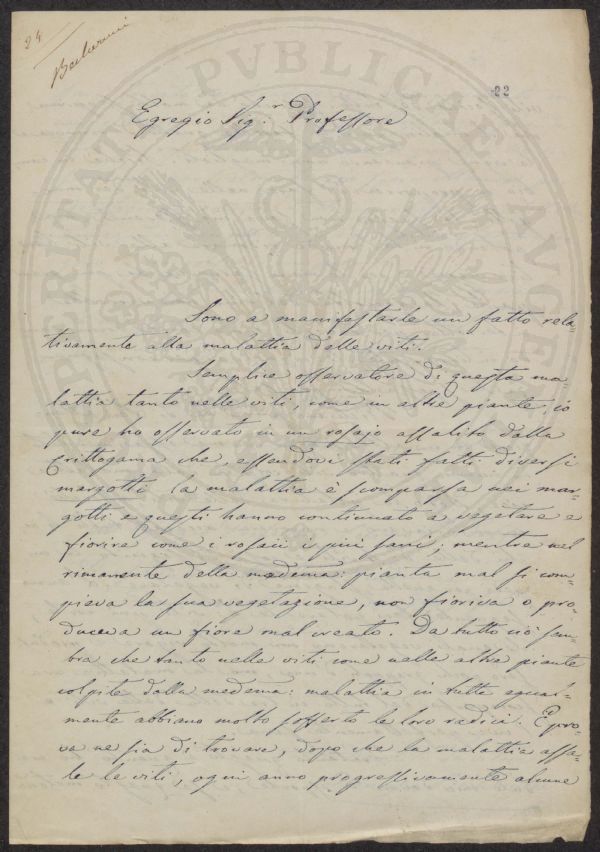 24
22
Egregio Sig.r Professore
Sono a manifestarle un fatto rela-
tivamente alla malattia delle viti.
Semplice osservatore di questa ma-
lattia tanto nelle viti, come in altre piante, io
pure ho osservato in un rosajo assalito dalla
Crittogama che, essendovi stati fatti diversi
margotti la malattia è scomparsa nei mar-
gotti e questi hanno continuato a vegetare e
fiorire come i rosaii i più sani; mentre nel
rimanente della medema: pianta mal si com-
pieva la sua vegetazione, non fioriva o pro-
duceva un fiore mal creato. Da tutto ciò sem-
bra che tanto nelle viti come nelle altre piante
colpite dalla medema: malattia in tutte egual-
mente abbiano molto sofferto le loro radici. E pro-
va ne sia di trovare, dopo che la malattia assa-
le le viti, ogni anno progressivamente alcune
PVBLICAE